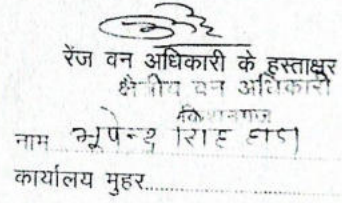 रेंज वन अधिकारी के हस्ताक्षर
क्षेत्रीय वन अधिकारी
किशनगंज
नाम भूपेन्द्र सिंह हाडा
कार्यालय मुहर